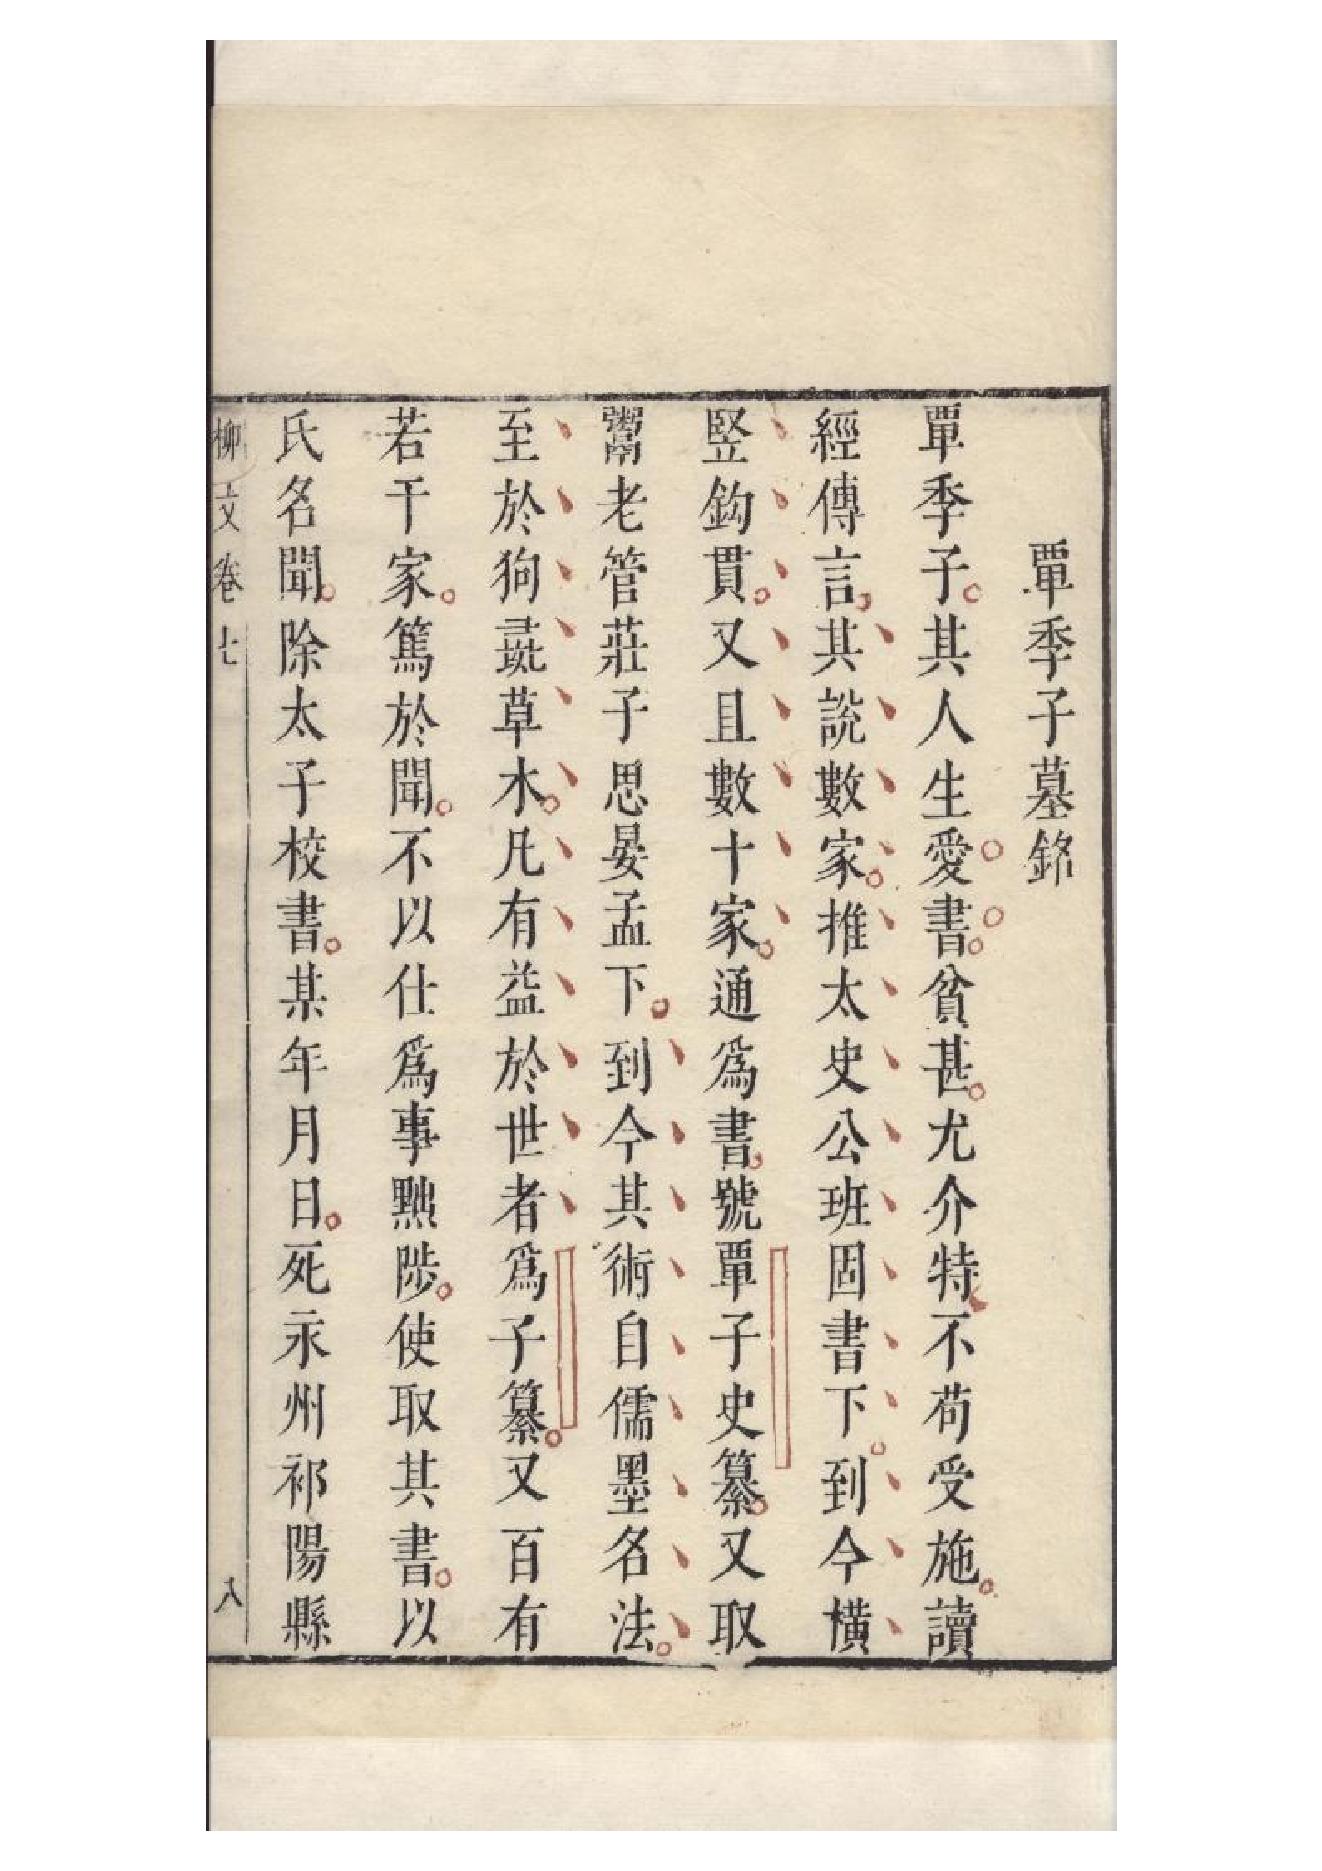 覃季子墓銘
覃季子其人生愛書貧甚尤介特不苟受施讀
經傳言其說數家推太史公班固書下到今橫
竪鈎貫又且數十家通爲書號覃子史纂又取
鬻老管莊子思晏孟下到今其術自儒墨名法
至於狗彘草木凡有益於世者爲子纂又百有
若干家篤於聞不以仕爲事黜陟使取其書以
氏名聞除太子校書某年月日死永州祁陽縣
柳文卷七
八